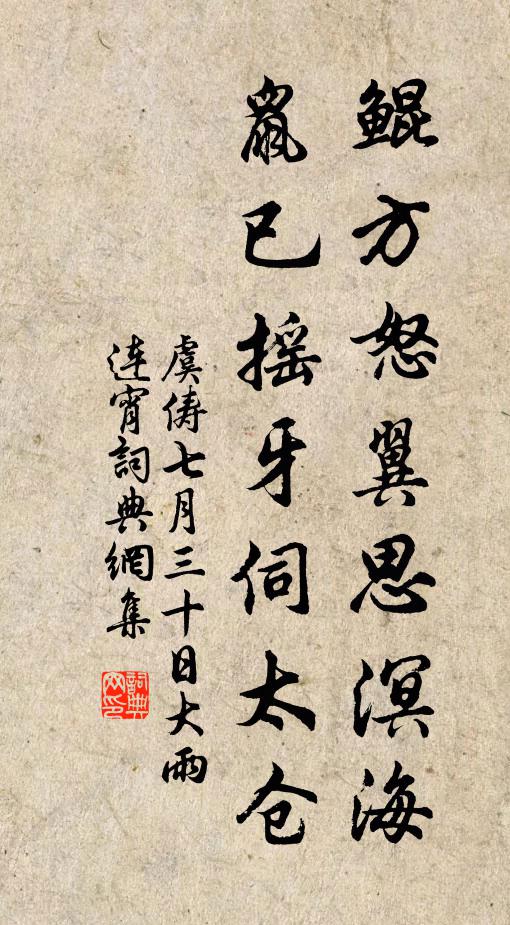 鲲方怒翼思溟海
鼠已摇牙伺太仓
虞俦七月三十日大雨
连宵词典網集
詞典网印